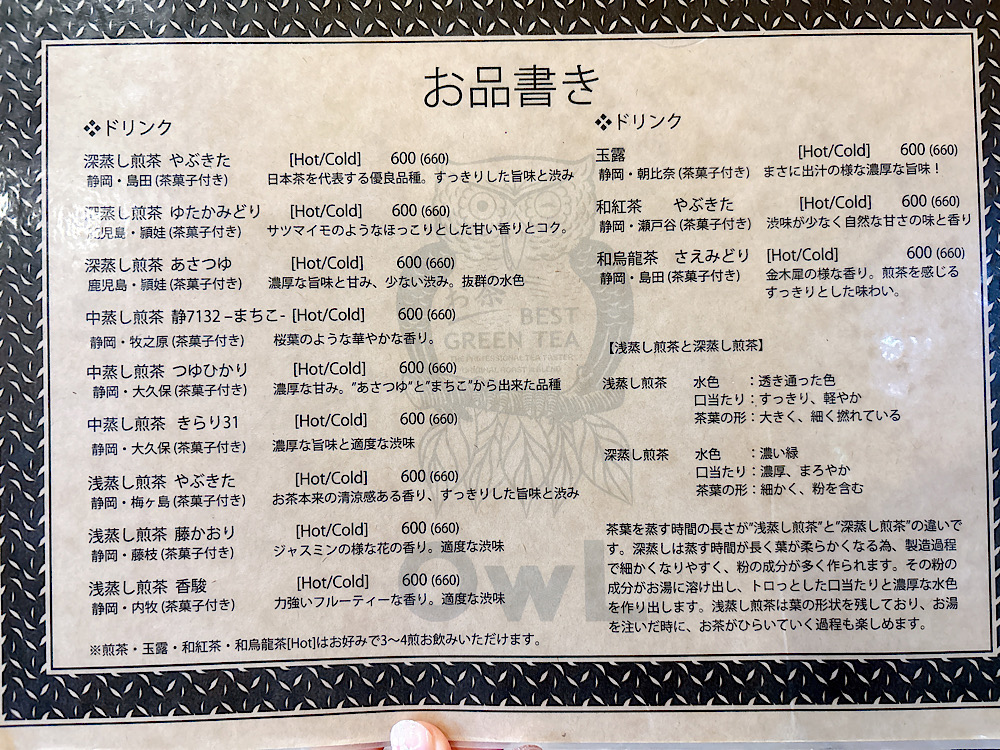 お品書き
❖ドリンク
深蒸し煎茶 やぶきた [Hot/Cold] 600 (660)
静岡・島田 (茶菓子付き) 日本茶を代表する優良品種。すっきりした旨味と渋み
深蒸し煎茶 ゆたかみどり [Hot/Cold] 600 (660)
鹿児島・頴娃 (茶菓子付き) サツマイモのようなほっこりとした甘い香りとコク。
深蒸し煎茶 あさつゆ [Hot/Cold] 600 (660)
鹿児島・頴娃 (茶菓子付き) 濃厚な旨味と甘み、少ない渋み。抜群の水色
中蒸し煎茶 静7132 –まちこ- [Hot/Cold] 600 (660)
静岡・牧之原 (茶菓子付き) 桜葉のような華やかな香り。
中蒸し煎茶 つゆひかり [Hot/Cold] 600 (660)
静岡・大久保 (茶菓子付き) 濃厚な甘み。”あさつゆ“と”まちこ”から出来た品種
中蒸し煎茶 きらり31 [Hot/Cold] 600 (660)
静岡・大久保 (茶菓子付き) 濃厚な旨味と適度な渋味
浅蒸し煎茶 やぶきた [Hot/Cold] 600 (660)
静岡・梅ヶ島 (茶菓子付き) お茶本来の清涼感ある香り、すっきりした旨味と渋み
浅蒸し煎茶 藤かおり [Hot/Cold] 600 (660)
静岡・藤枝 (茶菓子付き) ジャスミンの様な花の香り。適度な渋味
浅蒸し煎茶 香駿 [Hot/Cold] 600 (660)
静岡・内牧 (茶菓子付き) 力強いフルーティーな香り。適度な渋味
※煎茶・玉露・和紅茶・和烏龍茶[Hot]はお好みで3〜4煎お飲みいただけます。
❖ドリンク
玉露 [Hot/Cold] 600 (660)
静岡・朝比奈 (茶菓子付き) まさに出汁の様な濃厚な旨味！
和紅茶 やぶきた [Hot/Cold] 600 (660)
静岡・瀬戸谷 (茶菓子付き) 渋味が少なく自然な甘さの味と香り
和烏龍茶 さえみどり [Hot/Cold] 600 (660)
静岡・島田 (茶菓子付き) 金木犀の様な香り。煎茶を感じる
すっきりとした味わい。
【浅蒸し煎茶と深蒸し煎茶】
浅蒸し煎茶 水色 ：透き通った色
口当たり：すっきり、軽やか
茶葉の形：大きく、細く撚れている
深蒸し煎茶 水色 ：濃い緑
口当たり：濃厚、まろやか
茶葉の形：細かく、粉を含む
茶葉を蒸す時間の長さが”浅蒸し煎茶”と”深蒸し煎茶”の違いで
す。深蒸しは蒸す時間が長く葉が柔らかくなる為、製造過程
で細かくなりやすく、粉の成分が多く作られます。その粉の
成分がお湯に溶け出し、トロっとした口当たりと濃厚な水色
を作り出します。浅蒸し煎茶は葉の形状を残しており、お湯
を注いだ時に、お茶がひらいていく過程も楽しめます。
お茶
BEST
GREEN TEA
OwL